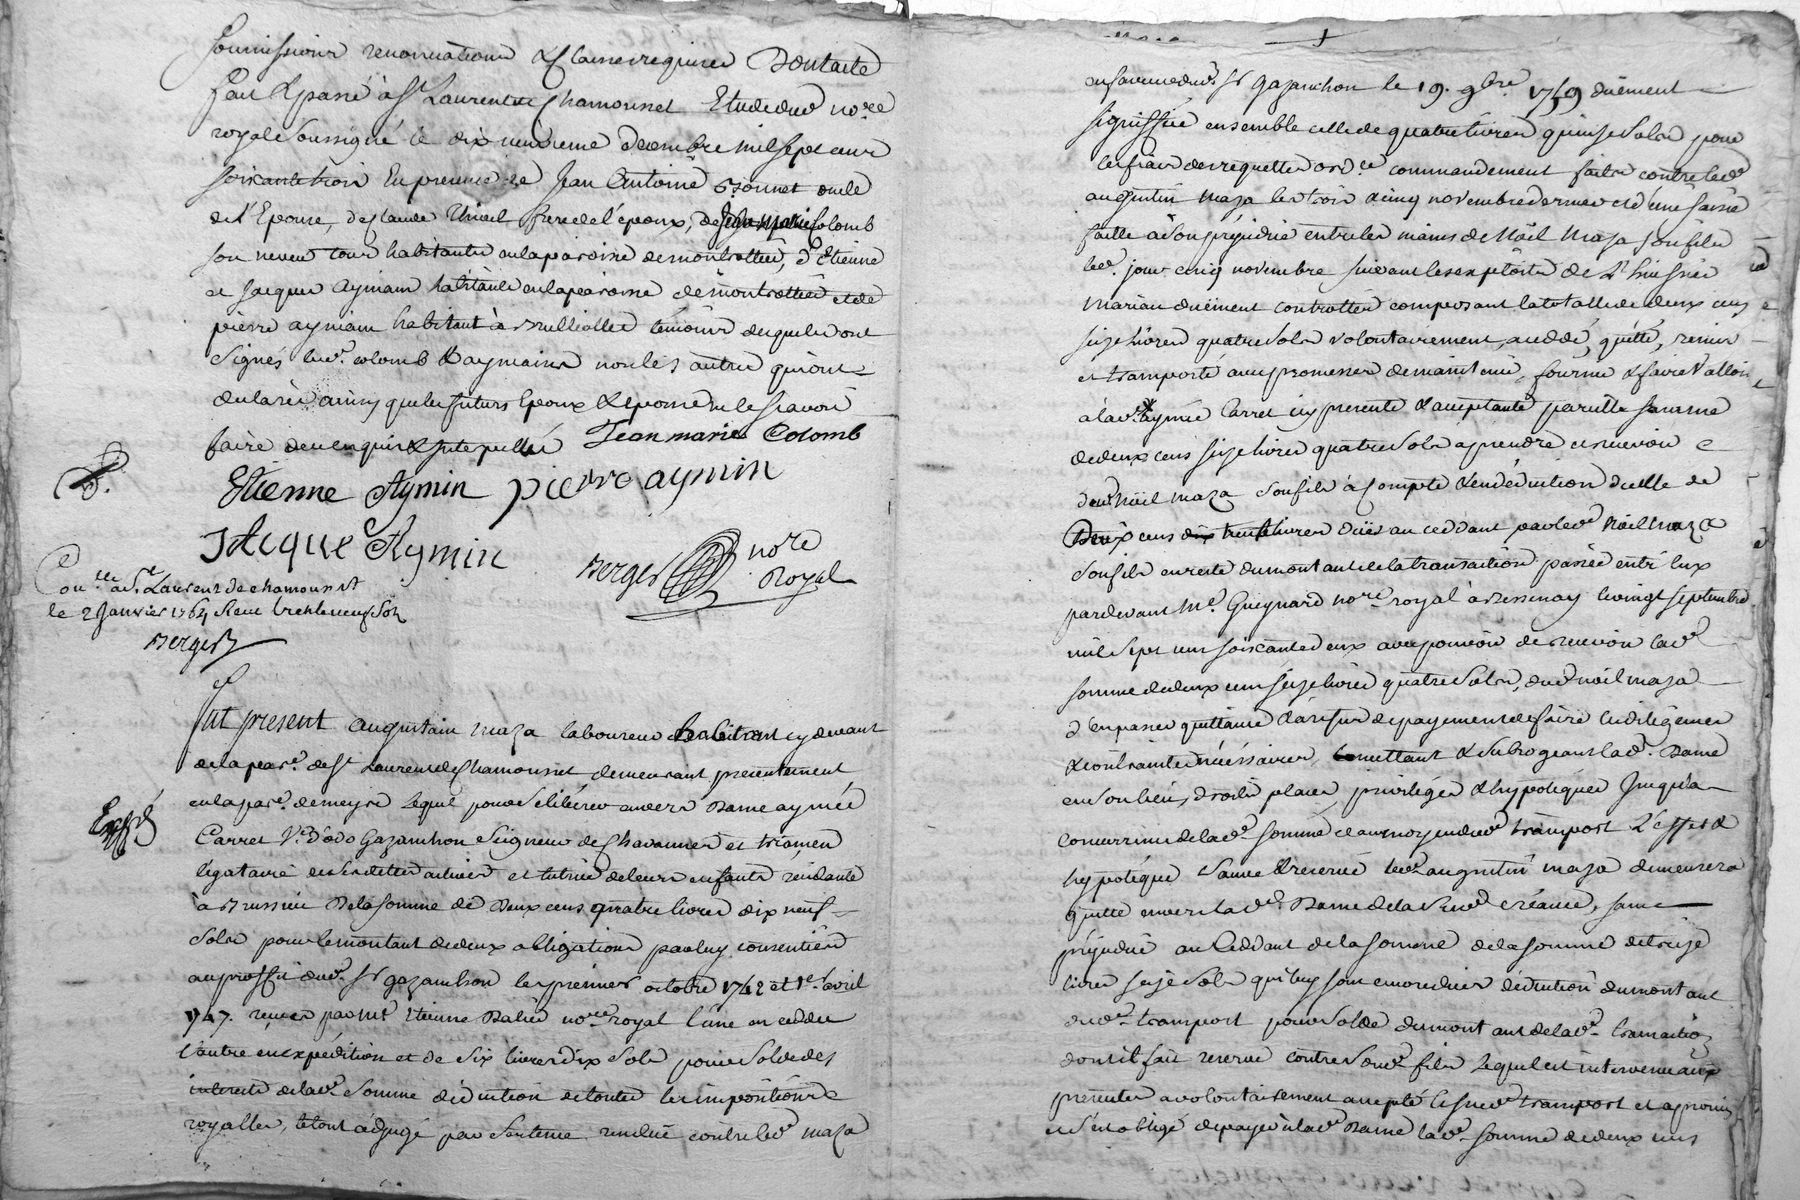 soumissions renonciations & clauses requises Dont acte
fait & passé à St Laurent de Chamousset Etude dud nore
royal soussigné le dix neuvieme decembre mil sept cens
soixante trois En presence de Jean Antoine oncle
de l'Epouse, de Claude frere de l'époux, de Jean Marie Colomb
son neveu tous habitants en la paroisse de montrottier, d'Etienne
et Jacques Aymain habitants en la paroisse de montrottier et de
pierre aymain habitant à Brulliolles temoins desquels ont
signés led. colomb & aymains non les autres qui ont
declarés ainsy que les futurs Epoux & epouse ne le scavoir
faire de ce enquis & interpellés Jean marie Colomb
Etienne Aymin pierre aymin
Jacque Aymin
Berger nore
Royal
Conlle a St Laurent de chamousset
le 2 Janvier 1764 Recu trente neuf sols
Berger
Fut present augustain maza laboureur habitant cy devant
de la parse. de St Laurent de Chamousset demeurant presentement
en la parse. de meys Lequel pour se liberer envers Dame aymée
Expé
Carret Ve. d'odo Gazanchon Seigneur de Chavannes et
légataire de ses dettes actives et tutrice de leurs enfants résidante
à Brussieu De la somme de Deux cens quatre livres dix neuf
sols pour le montant de deux obligations par luy consenties
au proffit dud. Sr gazanchon les premier octobre 1742 et 1er avril
1747. reçues par Me Etienne nore royal l'une en cedde
l'autre en expédition et de six livres dix sols pour solde des
interets de lad. somme déduction de toutes les impositions
royalles, le tout adjugé par Sentence rendue contre led maza
en faveur dud. Sr Gazanchon le 19. 9bre. 1759 duement
signiffiée ensemble celle de quatre livres quinze sols pour
les frais des requettes ordce commandement faits contre led
augustin maza les trois & cinq novembre dernier et d'une saisie
faitte à son préjudice entre les mains de Noël Maza son fils
led. jour cinq novembre suivant les exploits de
Marian duement controllés composant la totalle de deux cens
seize livres quatre sols volontairement a ceddé, quitté, remis
et transporté avec promesses de maintenir, fournir & faire valloir
à lad. aymée Carret icy presente & acceptante pareille somme
de deux cens seize livres quatre sols a prendre et recevoir
dud Noël maza son fils à compte & en déduction d'icelle de
Deux cens livres dües au ceddant par led Noël maza
son fils en reste du montant de la transaction passée entre eux
pardevant Me. Guignard nore royal à Bessenay le vingt septembre
mil sept cens soixante deux avec pouvoir de recevoir lad
somme de deux cens seize livres quatre sols, dud noël maza
d'en passer quittance & à refus de payement de faire les diligences
& contraintes nécéssaires, mettant & subrogeant lad. Dame
en son lieu, droits places, privilèges & hypotèques Jusqu'à
concurrence de lad. somme et au moyen dud. transport L'effet &
hypotéque sauve & reservée led. augustin maza demeurera
quitte envers lad. Dame de la susd. créance, sans
préjudice au Ceddant de la somme de la somme de treize
livres seize sols qui luy sont encore dües déduction du montant
dud. transport pour solde du montant de lad. transaction
dont il fait reserve contre sond. fils Lequel est intervenu aux
presentes a volontairement accepté le susd. transport et a promis
et s'est obligé de payer à lad. Dame lad. somme de deux cens